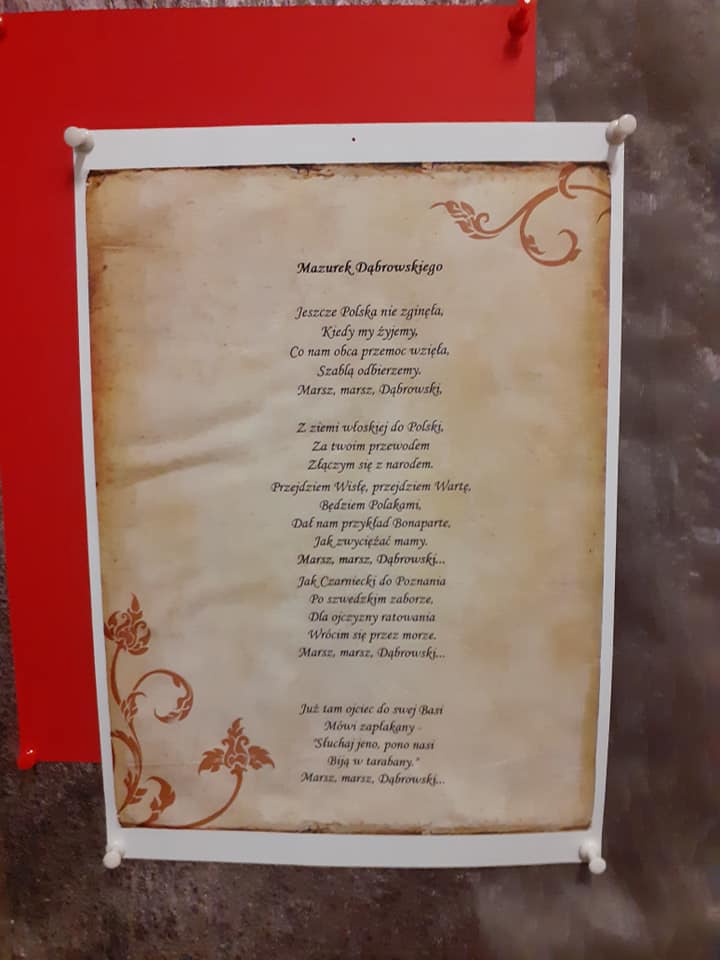 Mazurek Dąbrowskiego
Jeszcze Polska nie zginęła,
Kiedy my żyjemy,
Co nam obca przemoc wzięła,
Szablą odbierzemy.
Marsz, marsz, Dąbrowski,
Z ziemi włoskiej do Polski,
Za twoim przewodem
Złączym się z narodem.
Przejdziem Wisłę, przejdziem Wartę,
Będziem Polakami,
Dał nam przykład Bonaparte,
Jak zwyciężać mamy.
Marsz, marsz, Dąbrowski...
Jak Czarniecki do Poznania
Po szwedzkim zaborze,
Dla ojczyzny ratowania
Wrócim się przez morze.
Marsz, marsz, Dąbrowski...
Już tam ojciec do swej Basi
Mówi zapłakany -
"Słuchaj jeno, pono nasi
Biją w tarabany."
Marsz, marsz, Dąbrowski...